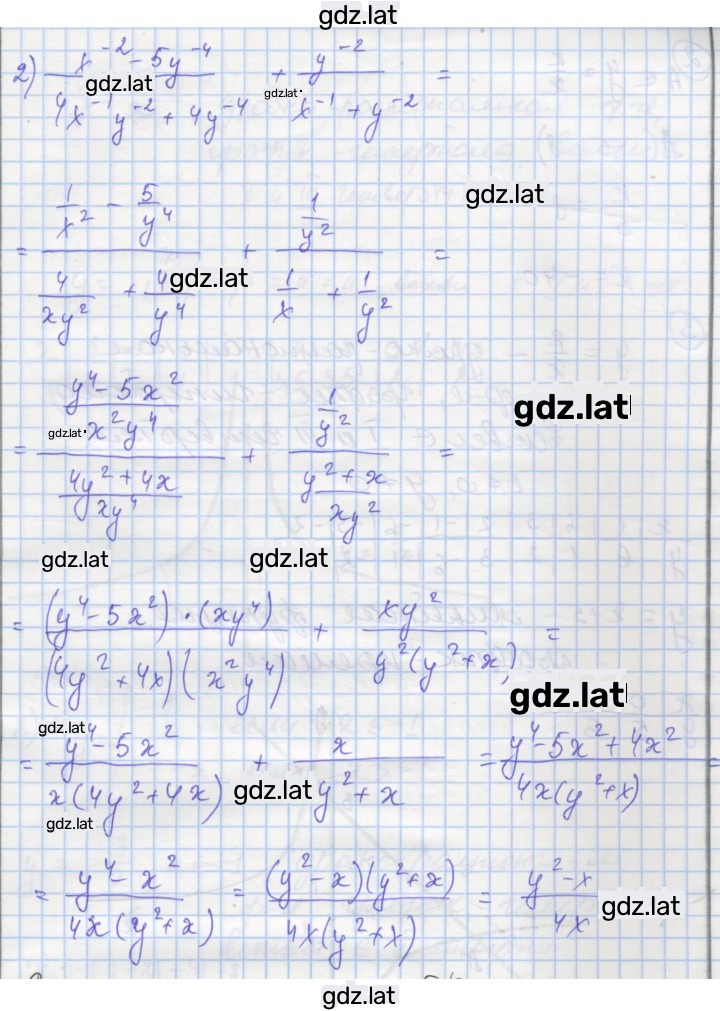 gdz.lat
2) (x⁻² - 5y⁻⁴)/(4x⁻¹y⁻² + 4y⁻⁴) + y⁻²/(x⁻¹ + y⁻²) =
gdz.lat gdz.lat
= (1/x² - 5/y⁴)/(4/(xy²) + 4/y⁴) + (1/y²)/(1/x + 1/y²) =
gdz.lat
gdz.lat
= ((y⁴ - 5x²)/(x²y⁴))/((4y² + 4x)/(xy⁴)) + (1/y²)/((y² + x)/(xy²)) =
gdz.lat
gdz.lat
gdz.lat gdz.lat
= ((y⁴ - 5x²) · (xy⁴))/((4y² + 4x)(x²y⁴)) + xy²/(y²(y² + x)) =
gdz.lat
gdz.lat
= (y⁴ - 5x²)/(x(4y² + 4x)) + x/(y² + x) = (y⁴ - 5x² + 4x²)/(4x(y² + x)) =
gdz.lat
gdz.lat
= (y⁴ - x²)/(4x(y² + x)) = ((y² - x)(y² + x))/(4x(y² + x)) = (y² - x)/(4x)
gdz.lat
gdz.lat